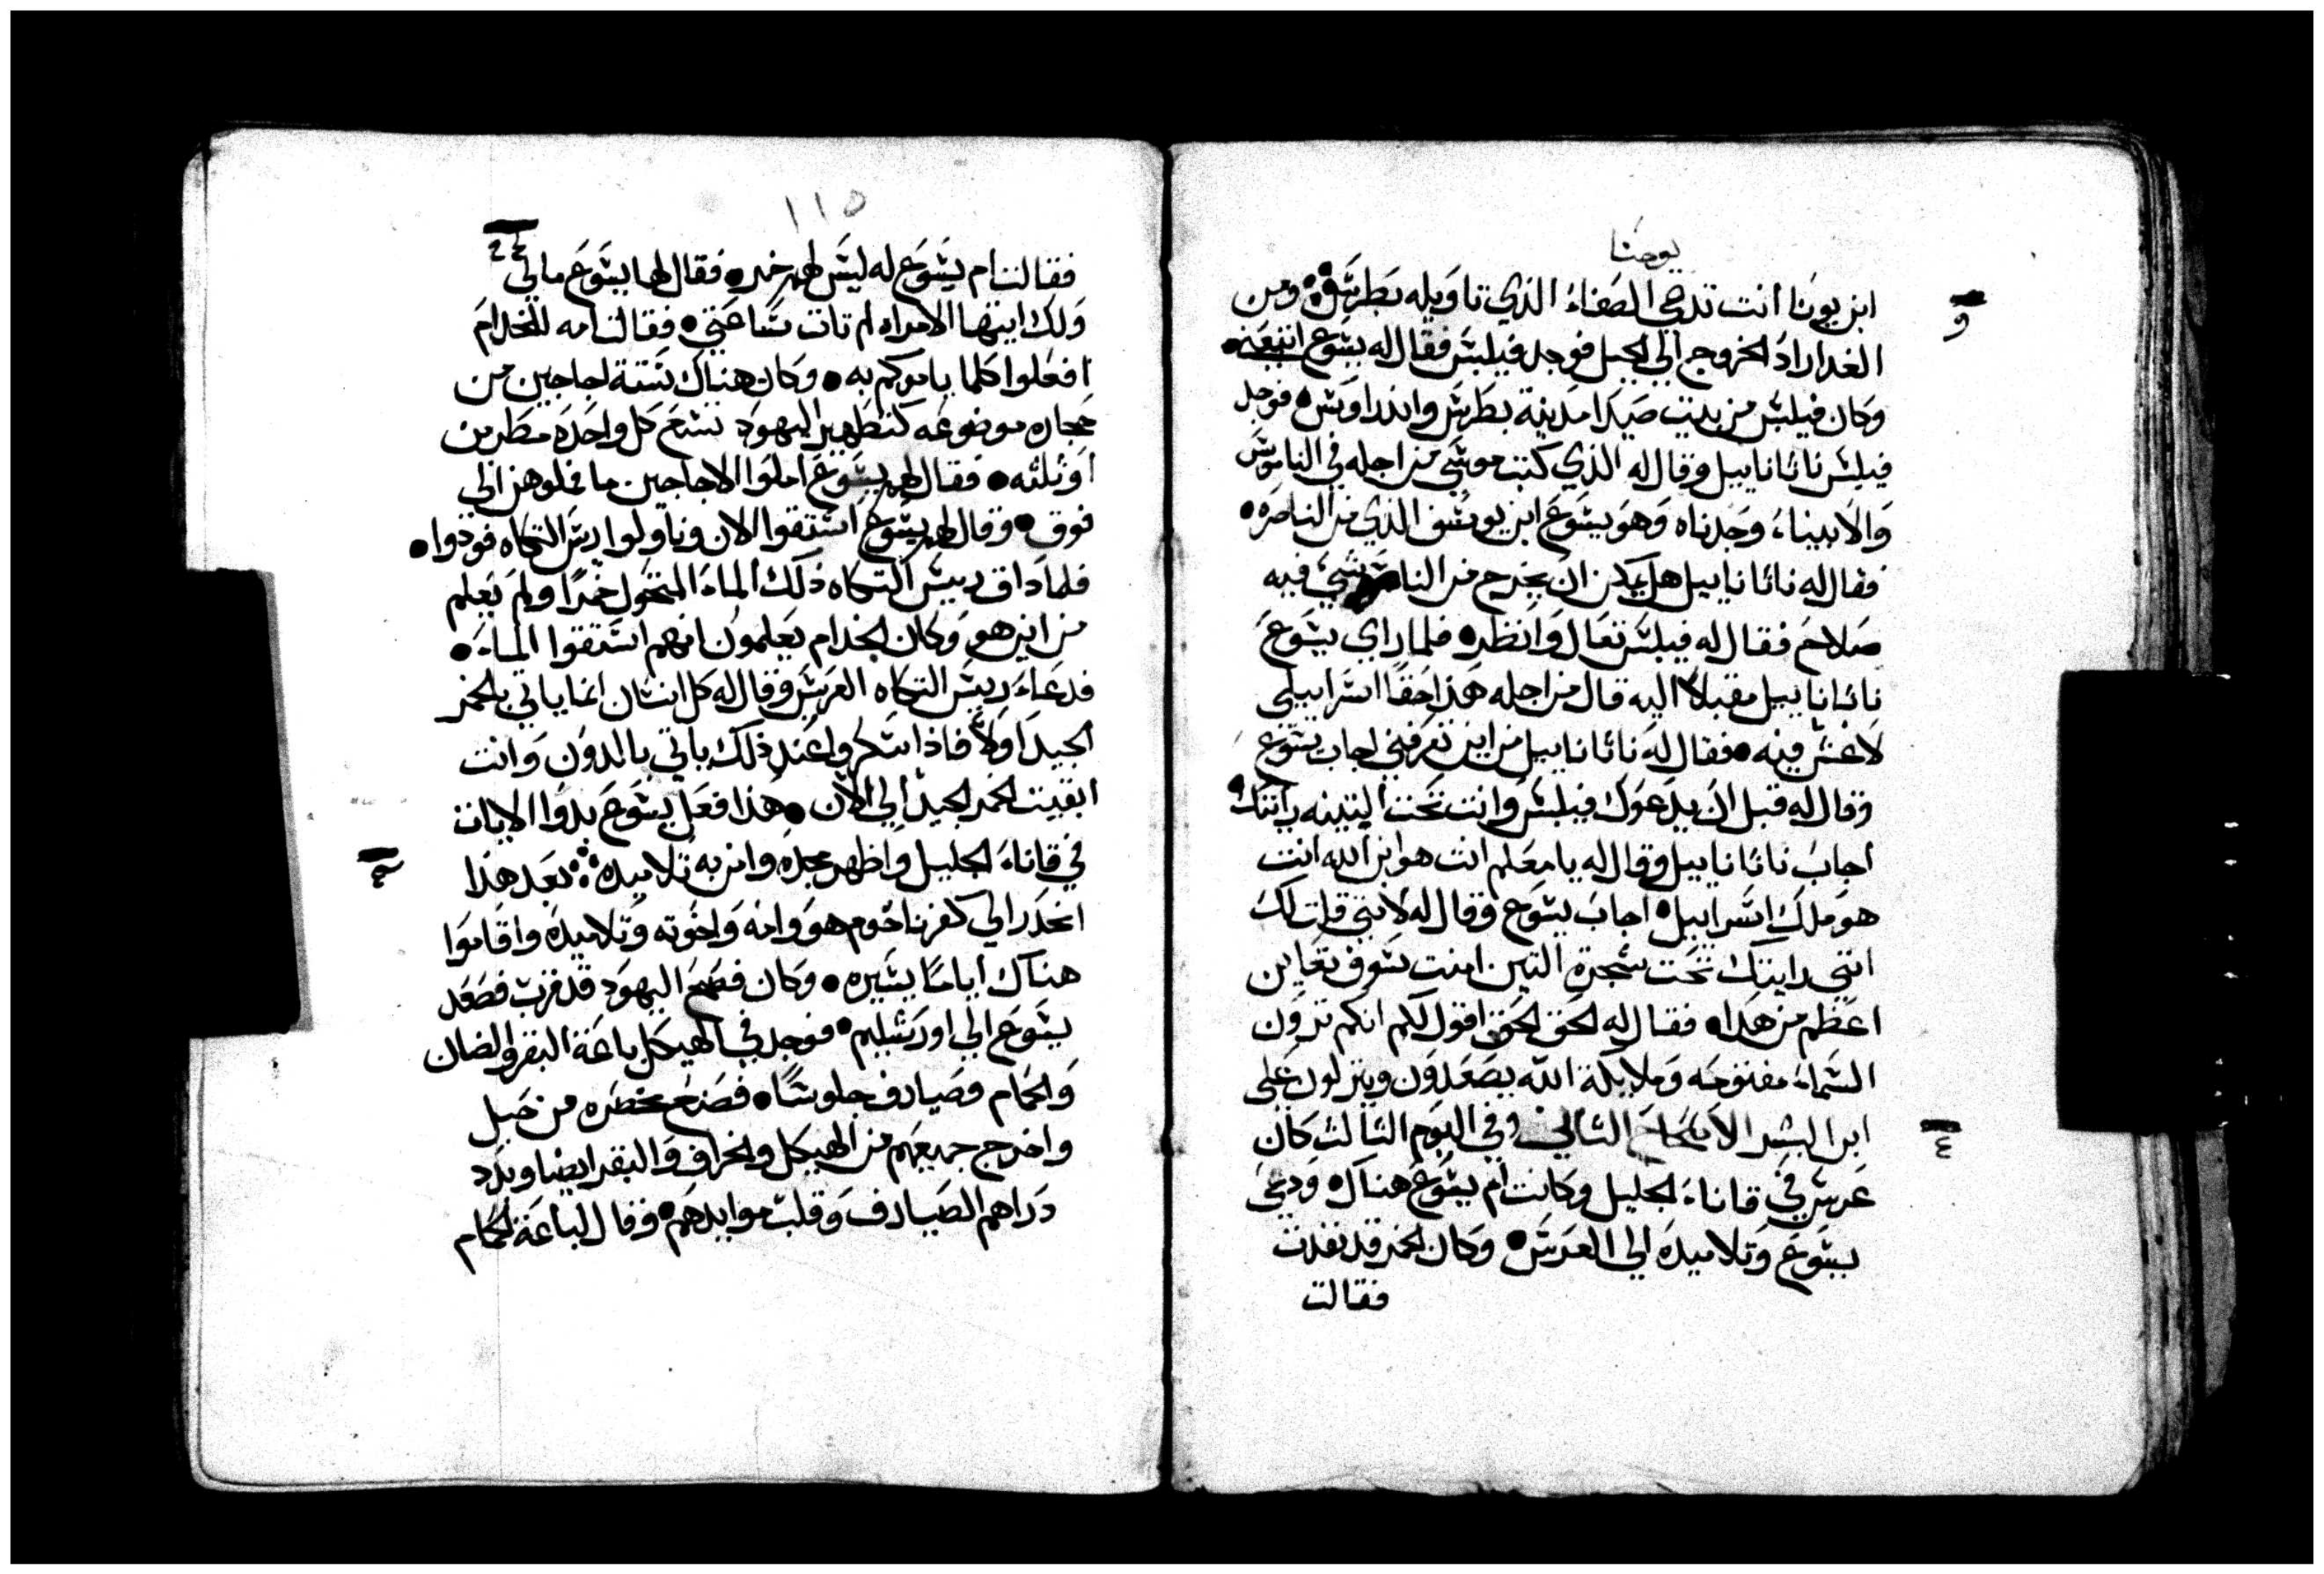 يوحنا
ابن يونا انت تدعي الصفاء الذي تاويله بطرس ومن
و
الغد اراد الخروج الي الجبل فوجد فيلبس فقال له يشوع اتبعني
وكان فيلبس من بيت صيدا مدينة بطرس واندراوس فوجد
فيلبس ناثاناييل وقال له الذي كتب موسي من اجله في الناموس
والانبياء وجدناه وهو يشوع ابن يوسف الذي من الناصره
فقال له ناثاناييل هل يمكن ان يخرج من شي فيه
صلاح فقال له فيلبس تعال وانظر فلما راي يشوع
ناثاناييل مقبلا اليه قال من اجله هذا حقا اسراييلي
لا غش فيه فقال له ناثاناييل من اين تعرفني اجاب يشوع
وقال له قبل ان يدعوك فيلبس وانت تحت التينه رايتك
اجاب ناثاناييل وقال له يا معلم انت هو ابن الله انت
هو ملك اسراييل اجاب يشوع وقال له لانني قلت لك
انني رايتك تحت شجرة التين امنت سوف تعاين
اعظم من هذا فقال له الحق الحق اقول لكم انكم ترون
السماء مفتوحه وملايكة الله يصعدون وينزلون علي
ابن البشر الاصحاح الثاني وفي اليوم الثالث كان
٤
عرس في قاناء الجليل وكانت ام يشوع هناك ودعي
يشوع وتلاميده الي العرس وكان الخمر قد نفدت
فقالت
١١٥
فقالت ام يشوع له ليس لهم خمر فقال لها يشوع ما لي
ولك ايتها الامراه لم تات ساعتي فقالت امه للخدام
افعلوا كلما يامركم به وكان هناك ستة اجاجين من
حجاره موضوعه كتطهير اليهود تسع كل واحده مطرين
او ثلثه فقال لهم يشوع املوا الاجاجين ما فملوهن الي
فوق وقال لهم يشوع استقوا الان وناولوا ريس التكاه فودوا
فلما داق رييس التكاه ذلك الماء المتحول خمرا ولم يعلم
من اين هو وكان الخدام يعلمون انهم استقوا الماء
فدعاء رييس التكاه العريس وقال له كل انسان انما ياتي بالخمر
الجيد اولا فاذا سكروا عند ذلك ياتي بالدون وانت
ابقيت الخمر الجيد الي الان هذا فعل يشوع بدوا الايات
في قاناء الجليل واظهر مجده وامن به تلاميده بعد هذا
انحدر الي كفرناحوم هو وامه واخوته وتلاميده واقاموا
هناك اياما يسيره وكان فصح اليهود قد قرب فصعد
يشوع الي اورشليم فوجد في الهيكل باعة البقر والضان
والحمام وصيارف جلوسا فصنع مخصره من حبل
واخرج جميعهم من الهيكل والخراف والبقر ايضا وبدد
دراهم الصيارف وقلب موايدهم وقال لباعة الحمام